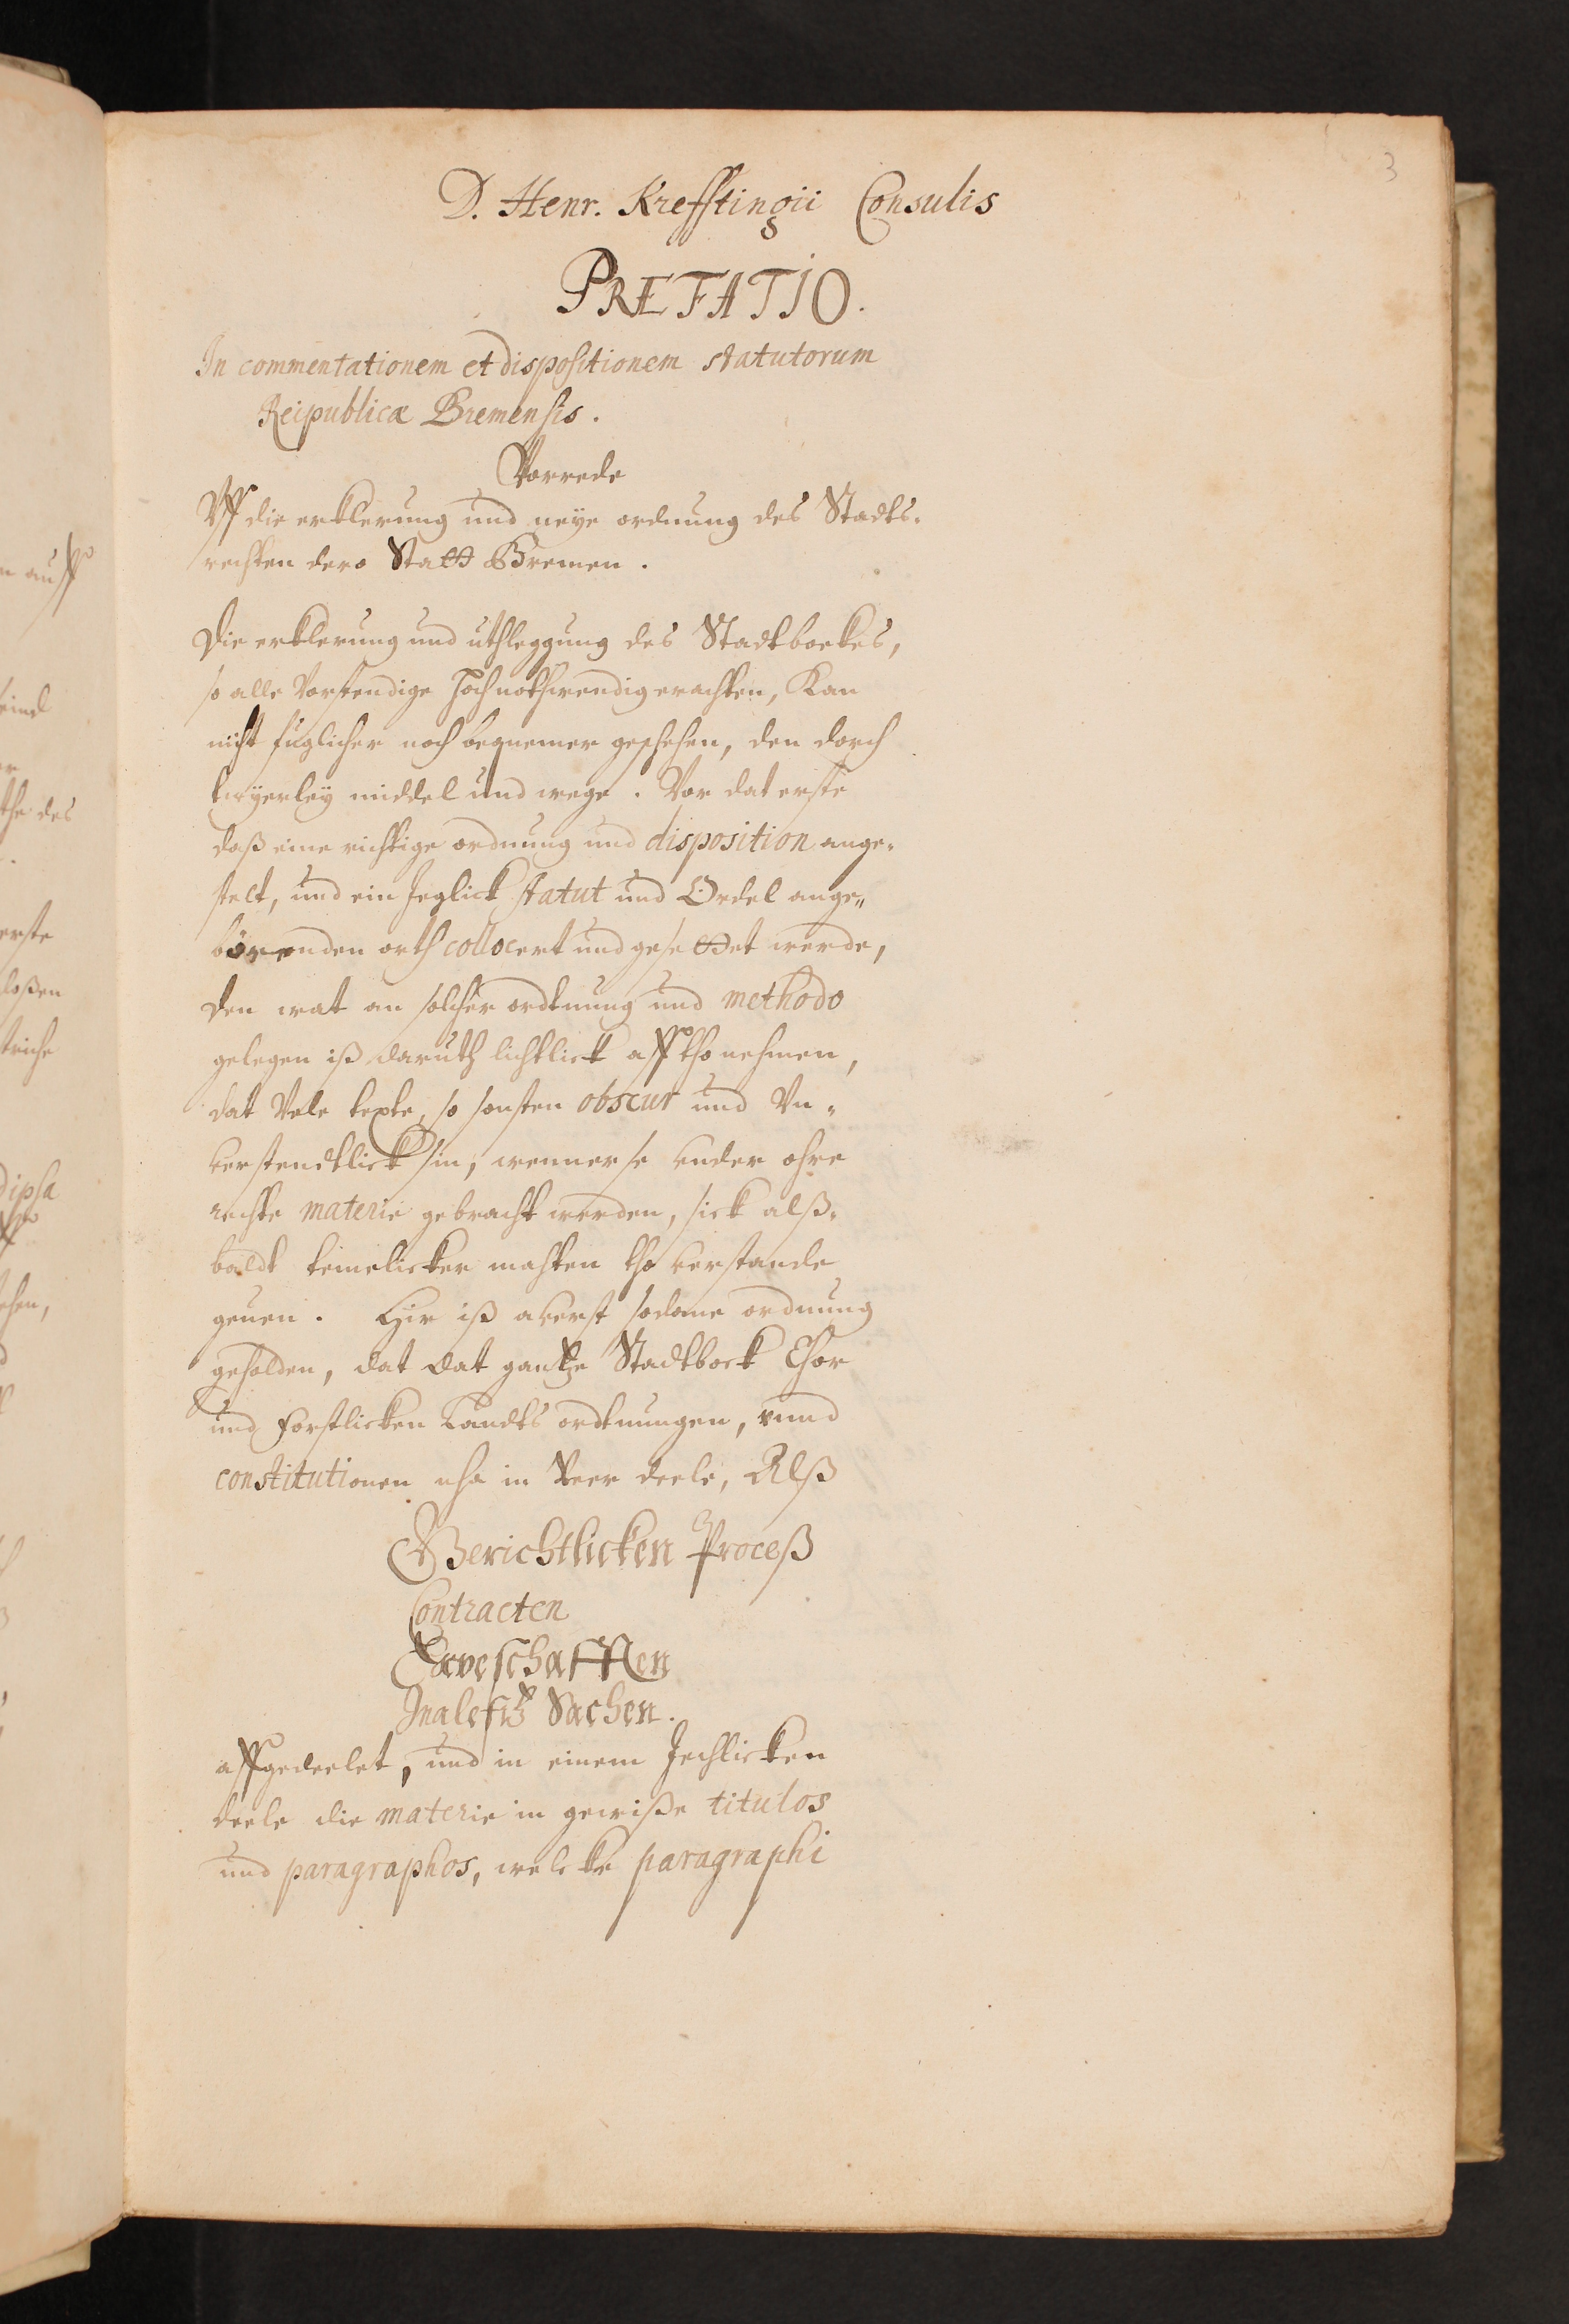 3
D. Henr. Krefftingii Consulis
PRÆFATIO.
In commentationem et dispositionem statutorum
Reipublicæ Bremensis.
Vorrede
Vff die erklerung und neye ordnung des Stadts-
rechten dero Stadt Bremen.
Die erklerung und uthleggung des Stadtboekes,
so alle Vorstendige hochnothwendig erachten, Kan
nicht füglicher noch bequemer geschehen, den dorch
twyerley middel und wege. Vor dat erste
daß eine richtige ordnung und disposition ange-
stelt, und ein Jeglick statut und Ordel ange-
börenden orth collocert und gesettet werde,
den wat an solcher ordtnung und methodo
gelegen iß daruth lichtlick aff tho nehmen,
dat Vele texte, so sonsten obscur und Vn-
verstendtlick sin, wenner se vnder ohre
rechte materie gebracht werden, sick alß-
baldt temelicker mahten tho verstande
geuen. Hir iß averst sodane ordnung
geholden, dat dat gantze Stadtboek Chor
und Forstlicken Landts ordtnungen, vnnd
constitutionen nha in Veer deele, Alß
Gerichtlicken Proceß
Contracten
Erveschafften
Malefitz Sachen.
affgedeelet, und in einem Jechlicken
deele die materie in gewiße titulos
und paragraphos, welcke paragraphi
n auff
the des
erste
loßen
ehen,